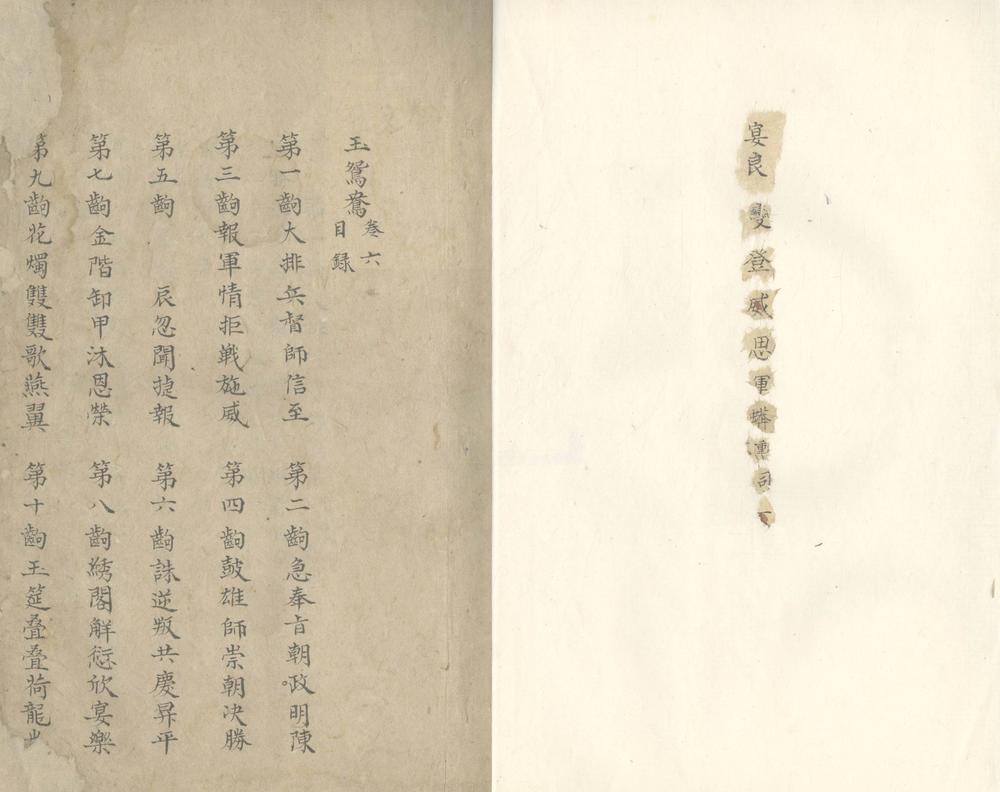 宴良 登威思軍 司
玉鴛鴦卷六
目錄
第一齣大排兵督師信至 第二齣急奉旨朝政明陳
第三齣報軍情拒戰施威 第四齣鼓雄師崇朝决勝
第五齣 辰忽聞捷報 第六齣誅逆叛共慶昇平
第七齣金階卸甲沐恩榮 第八齣綉閣觧愆欣宴樂
第九齣花燭雙雙歌燕翼 第十齣玉筵叠叠荷龍